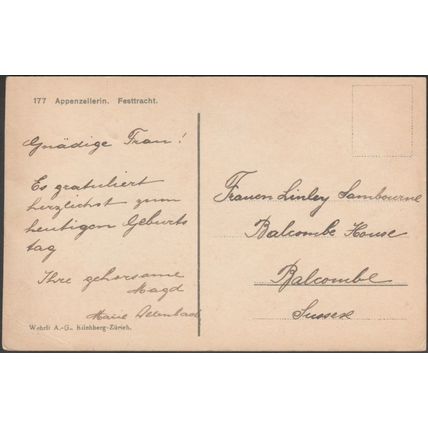 177 Appenzellerin. Festtracht.
Gnädige Frau!
Es gratuliert
herzlichst zum
heutigen Geburts
tag
Ihre gehorsame
Magd
Marie
Wehrli A.-G., Kilchberg-Zürich.
Frauen Linley Sambourne
Balcombe House
Balcombe
Sussex